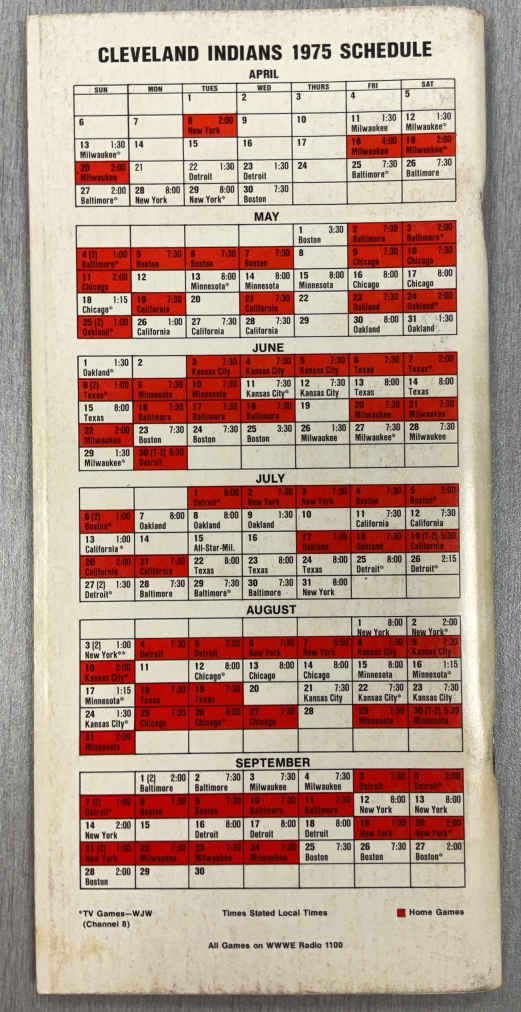 CLEVELAND INDIANS 1975 SCHEDULE
APRIL
SUN MON TUES WED THURS FRI SAT
1 2 3 4 5
6 7 8 2:00 9 10 11 1:30 12 1:30
New York Milwaukee Milwaukee*
13 1:30 14 15 16 17 18 4:00 19 2:00
Milwaukee* Milwaukee Milwaukee*
20 2:00 21 22 1:30 23 1:30 24 25 7:30 26 7:30
Milwaukee Detroit Detroit Baltimore* Baltimore
27 2:00 28 8:00 29 8:00 30 7:30
Baltimore* New York New York* Boston
MAY
1 3:30 2 7:30 3 2:00
Boston Baltimore Baltimore*
4 (2) 1:00 5 7:30 6 7:30 7 7:30 8 9 7:30 10 7:30
Baltimore* Boston Boston Boston Chicago Chicago
11 2:00 12 13 8:00 14 8:00 15 8:00 16 8:00 17 8:00
Chicago Minnesota* Minnesota Minnesota Chicago Chicago
18 1:15 19 7:30 20 21 7:30 22 23 7:30 24 2:00
Chicago* California California Oakland Oakland*
25 (2) 1:00 26 1:00 27 7:30 28 7:30 29 30 8:00 31 1:30
Oakland* California California California Oakland Oakland
JUNE
1 1:30 2 3 7:30 4 7:30 5 7:30 6 7:30 7 2:00
Oakland* Kansas City Kansas City Kansas City Texas Texas*
8 (2) 1:00 9 7:30 10 7:30 11 7:30 12 7:30 13 8:00 14 8:00
Texas* Minnesota Minnesota Kansas City* Kansas City Texas Texas
15 8:00 16 7:30 17 7:30 18 7:30 19 20 7:30 21 7:30
Texas Baltimore Baltimore Baltimore Milwaukee Milwaukee
22 2:00 23 7:30 24 7:30 25 3:30 26 1:30 27 7:30 28 7:30
Milwaukee Boston Boston Boston Milwaukee Milwaukee* Milwaukee
29 1:30 30 (T-2) 5:30
Milwaukee* Detroit
JULY
1 8:00 2 7:30 3 7:30 4 7:30 5 2:00
Detroit* New York New York Boston Boston*
6 (2) 1:00 7 8:00 8 8:00 9 1:30 10 11 7:30 12 7:30
Boston* Oakland Oakland Oakland California California
13 1:00 14 15 16 17 7:30 18 7:30 19 (T-2) 5:30
California* All-Star-Mil. Oakland Oakland California
20 2:00 21 7:30 22 8:00 23 8:00 24 8:00 25 8:00 26 2:15
California California Texas Texas Texas Detroit* Detroit*
27 (2) 1:30 28 7:30 29 7:30 30 7:30 31 8:00
Detroit* Baltimore Baltimore* Baltimore New York
AUGUST
1 8:00 2 2:00
New York New York*
3 (2) 1:00 4 7:30 5 7:30 6 7:30 7 7:30 8 7:30 9 7:30
New York** Detroit Detroit New York New York Kansas City Kansas City
10 2:00 11 12 8:00 13 8:00 14 8:00 15 8:00 16 1:15
Kansas City* Chicago* Chicago Chicago Minnesota Minnesota*
17 1:15 18 7:30 19 7:30 20 21 7:30 22 7:30 23 7:30
Minnesota* Texas Texas Kansas City Kansas City* Kansas City
24 1:30 25 7:30 26 8:00 27 7:30 28 29 7:30 30 (T-2) 5:30
Kansas City* Chicago Chicago* Chicago Minnesota Minnesota
31 2:00
Minnesota
SEPTEMBER
1 (2) 2:00 2 7:30 3 7:30 4 7:30 5 7:30 6 2:00
Baltimore Baltimore Milwaukee Milwaukee Detroit Detroit*
7 (2) 1:00 8 7:30 9 7:30 10 7:30 11 7:30 12 8:00 13 8:00
Detroit* Boston Boston Baltimore Baltimore New York New York
14 2:00 15 16 8:00 17 8:00 18 8:00 19 7:30 20 2:00
New York Detroit Detroit Detroit New York New York*
21 (2) 1:00 22 7:30 23 7:30 24 7:30 25 7:30 26 7:30 27 2:00
New York Milwaukee Milwaukee Milwaukee Boston Boston Boston*
28 2:00 29 30
Boston
*TV Games—WJW Times Stated Local Times Home Games
(Channel 8)
All Games on WWWE Radio 1100